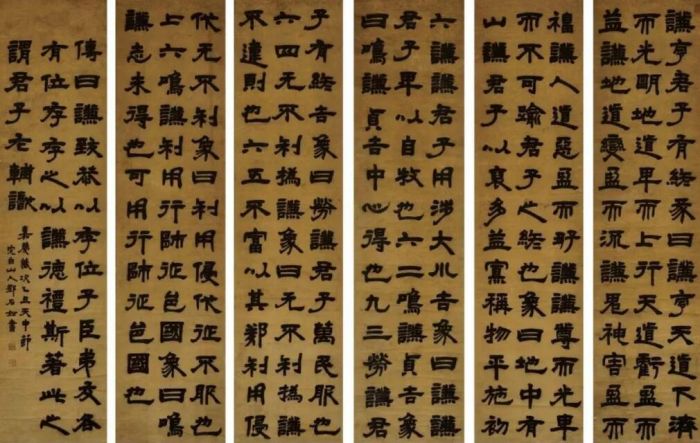 謙亨君子有終彖曰謙亨天道下濟
而光明地道卑而上行天道虧盈而
益謙地道變盈而流謙鬼神害盈而
福謙人道惡盈而好謙謙尊而光卑
而不可踰君子之終也象曰地中有
山謙君子以裒多益寡稱物平施初
六謙謙君子用涉大川吉象曰謙謙
君子卑以自牧也六二鳴謙貞吉象
曰鳴謙貞吉中心得也九三勞謙君
子有終吉象曰勞謙君子萬民服也
六四无不利撝謙象曰无不利撝謙
不違則也六五不富以其鄰利用侵
伐无不利象曰利用侵伐征不服也
上六鳴謙利用行師征邑國象曰鳴
謙志未得也可用行師征邑國也
傳曰謙致恭以存位子臣弟友各
有位存存之以謙德禮斯著此之
謂君子左輔歟
嘉慶歲次乙丑天中節
完白山人鄧石如書